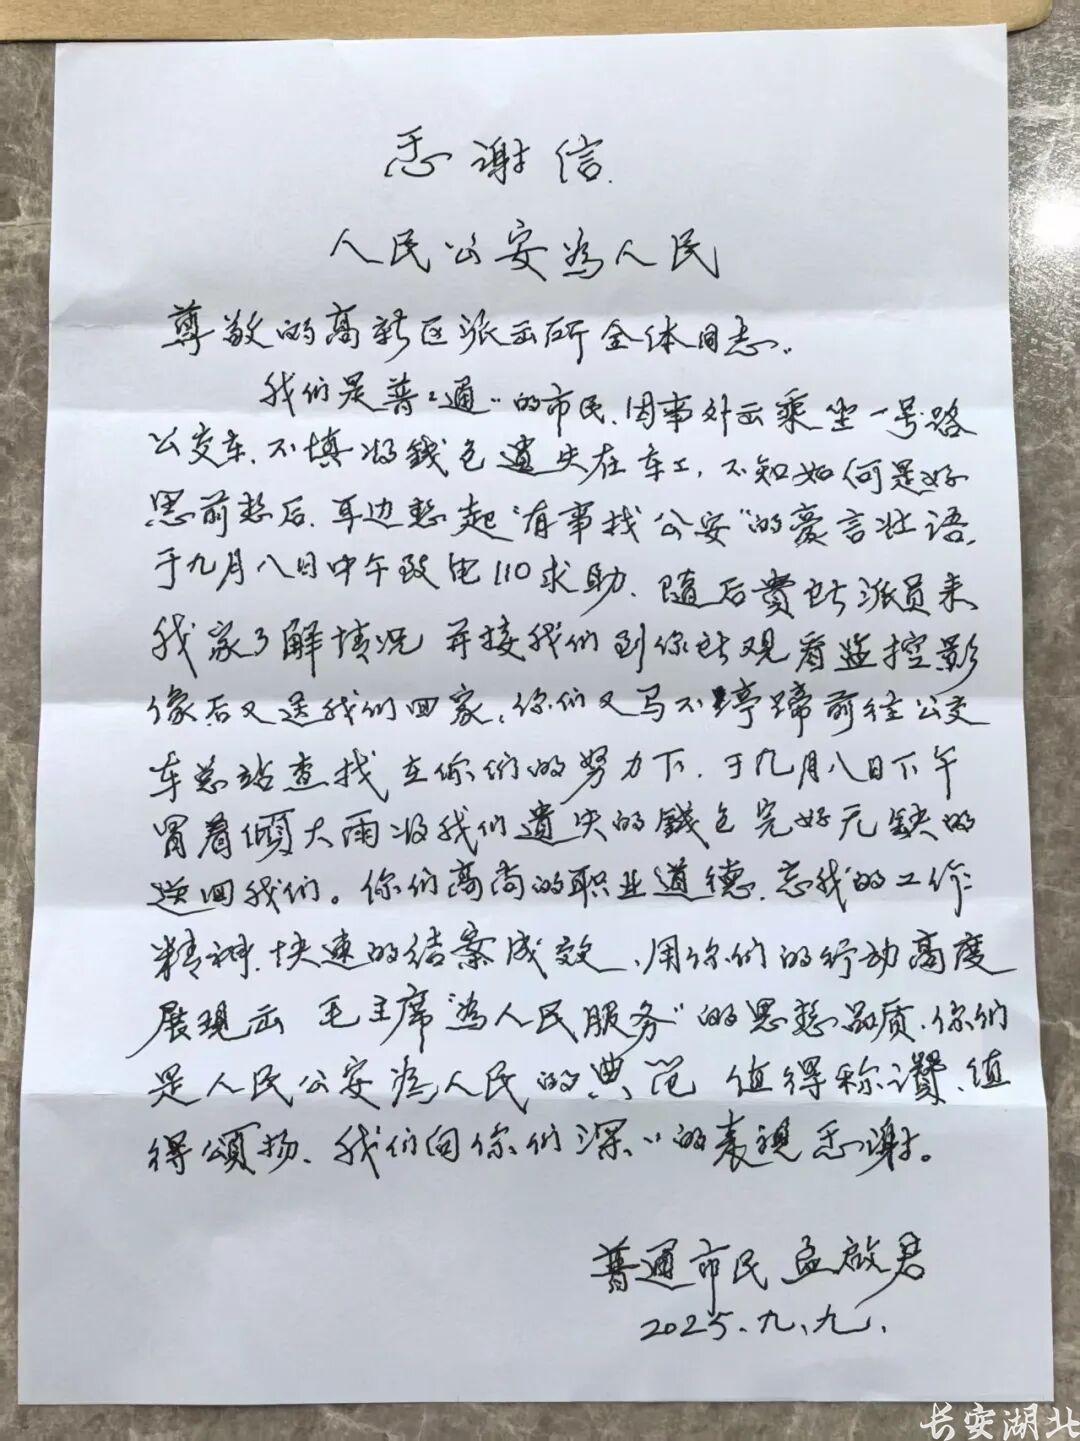 感谢信
人民公安為人民
尊敬的高新区派出所全体同志。
我们是普々通〃的市民、因事外出乘坐一号路
公交车、不填将錢包遺失在车上，不知如何是好
思前想后、耳边想起“有事找公安”的豪言壮语，
于九月八日中午致电110求助、随后贵站派员来
我家了解情况 并接我们到你站观看监控影
像后又送我们回家，你们又马不停蹄前往公交
车总站查找 在你们的努力下，于九月八日下午
冒着倾大雨将我们遺失的錢包完好无缺的
送回我们。你们高尚的职业道德、忘我的工作
精神、快速的结案成效、用你们的行动高度
展现出 毛主席“為人民服务”的思想品质、你们
是人民公安為人民的典范 值得称讚、值
得頌扬、我们向你们深〃的表现感谢。
普通市民 孟啟君
2025.九、九、
长安湖北